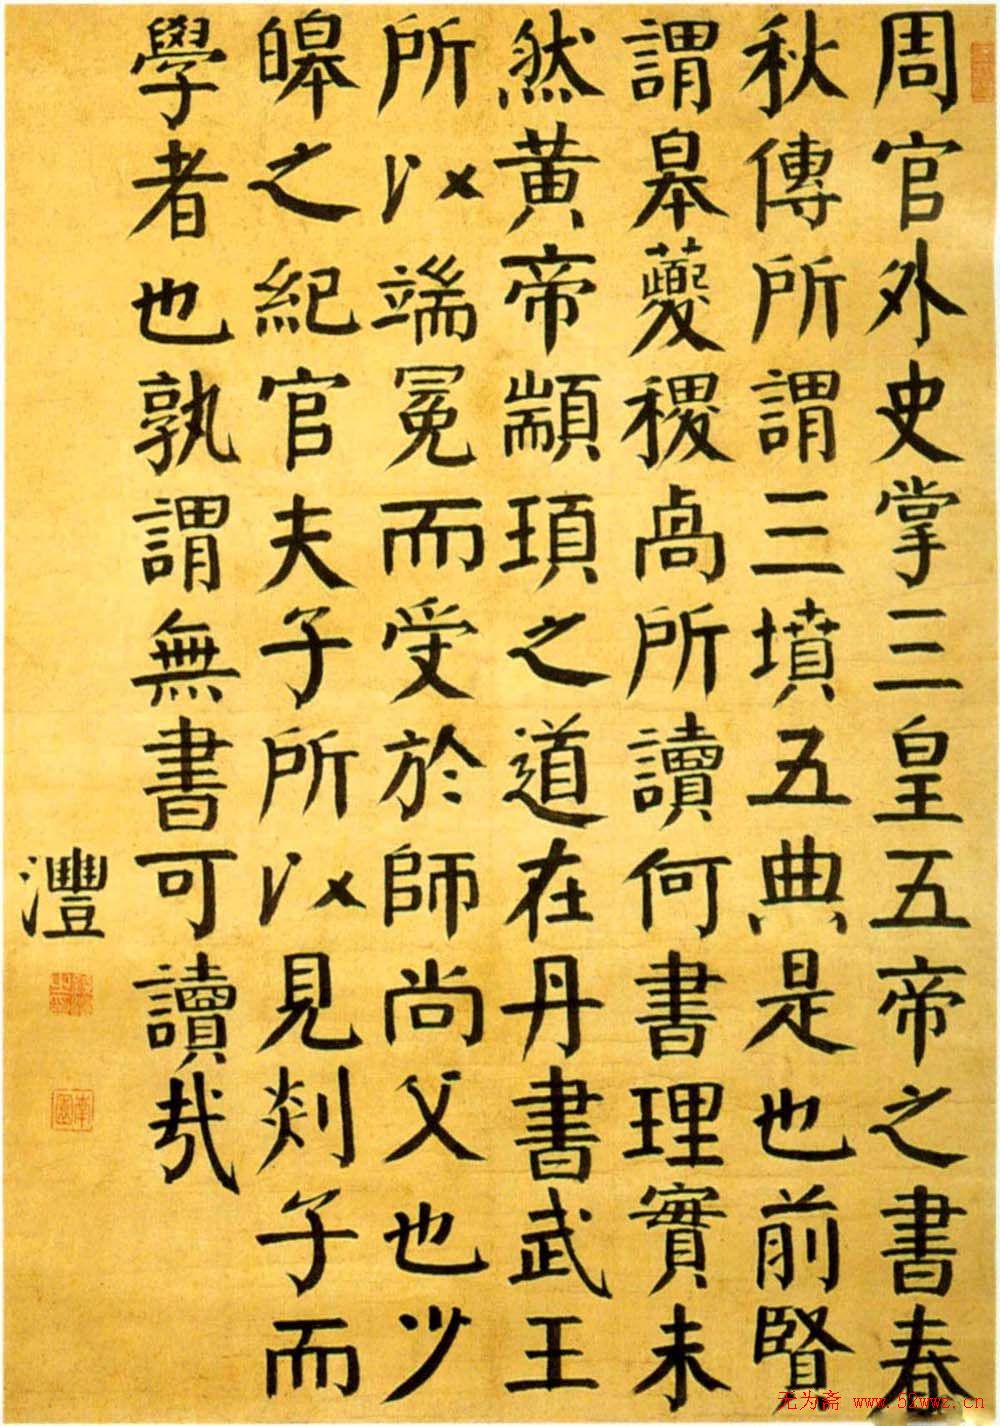 周官外史掌三皇五帝之書春
秋傳所謂三墳五典是也前賢
謂皋夔稷卨所讀何書理實未
然黃帝顓頊之道在丹書武王
所以端冕而受於師尚父也少
皞之紀官夫子所以見郯子而
學者也孰謂無書可讀哉
灃
无为斋 www.52wwz.cn